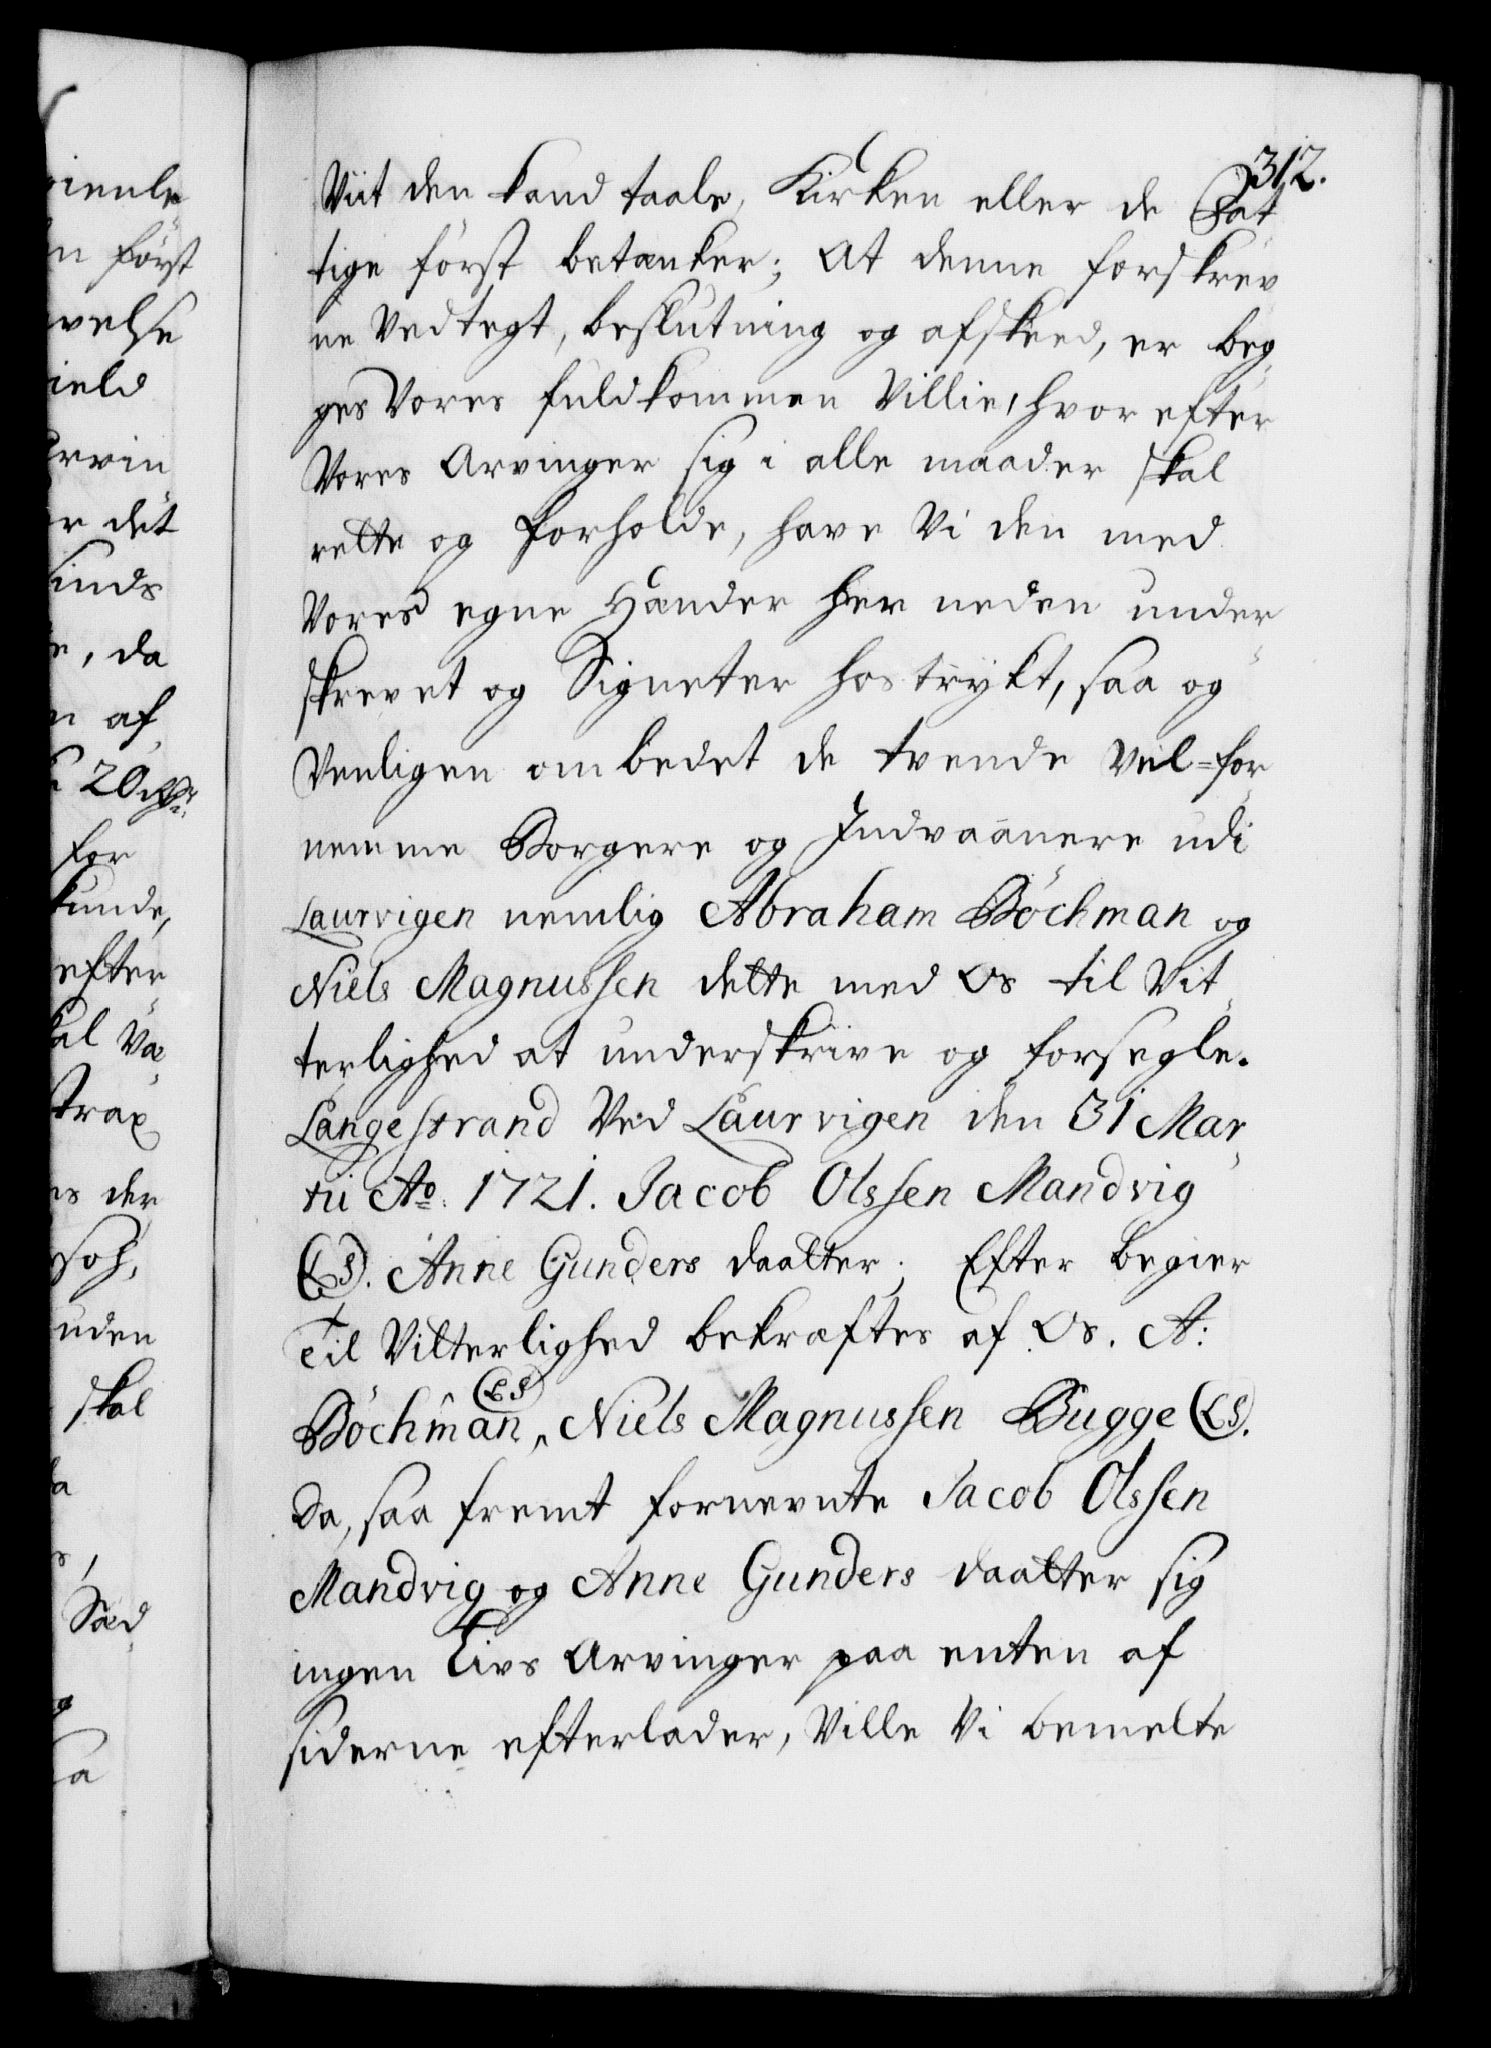 312.
Viit den kand taale, Kirken eller de Fat
tige først betænker; At denne forskrev
ne Vedtegt, beslutning og afskeed, er beg
ges Vores fuldkommen Villie, hvor efter
Vores Arvinger sig i alle maader skal
rette og forholde, have Vi den med
Vores egne Hænder her neden under
skrevet og Signeter hos trykt, saa og
Venligen ombedet de tvende Vel=for
nemme Borgere og Indvaanere udi
Laurvigen nemlig Abraham Böchman og
Niels Magnussen dette med Os til Vit
terlighed at underskrive og forsegle.
Langestrand Ved Laurvigen den 31 Mar
tii Ao. 1721. Jacob Olssen Mandvig
(LS). Anne Gunders daatter; Efter begier
Til Vitterlighed bekræftes af Os. A:
Böchman, (LS) Niels Magnussen Bugge (LS).
Da, saa fremt fornevnte Jacob Olssen
Mandvig og Anne Gunders daatter sig
ingen Livs Arvinger paa enten af
siderne efterlader, Ville Vi bemelte
ienle
n först
velse
ield
rvin
r det
sinds
e, da
n af
20
for
kunde,
efter
kal Væ
strax
s der
uden
skal
a
Sæd